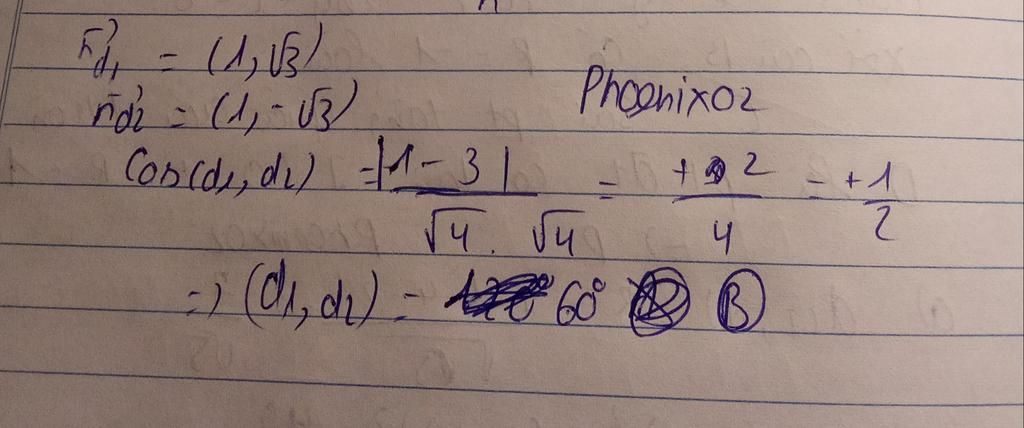 n⃗d₁ = (1, √3)
n⃗d₂ = (1, -√3)
Phoenixoz
Cos(d₁, d₂) = |1 - 3| / √4 . √4 = + 2 / 4 = + 1 / 2
=> (d₁, d₂) = 60° B